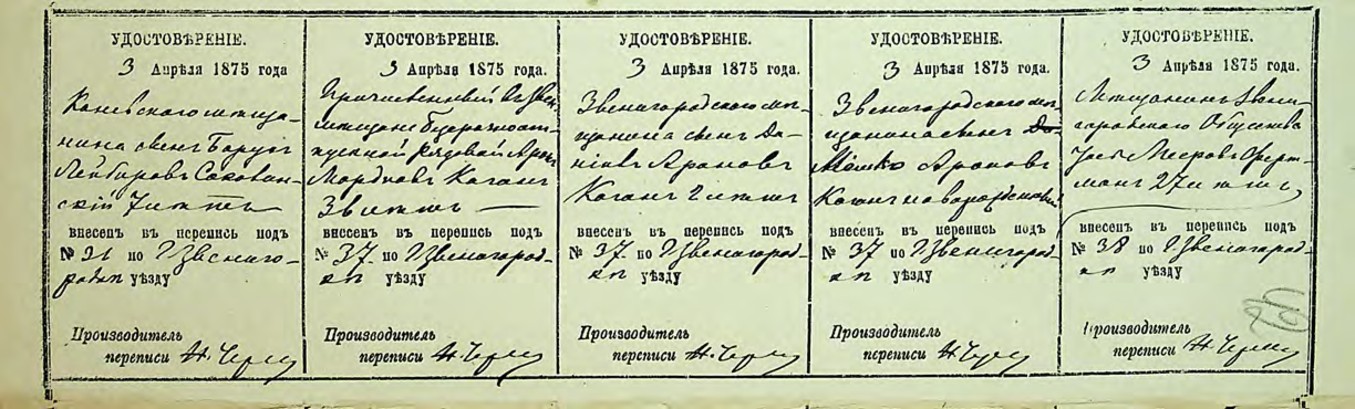 УДОСТОВѢРЕНІЕ.
3 Апрѣля 1875 года
Каневскаго мѣща-
нина сынъ Барухъ
Лейбировъ
скій 7 лѣтъ
внесенъ въ перепись подъ
№ 31 по г. Звениго-
родкѣ уѣзду
Производитель
переписи Н.
УДОСТОВѢРЕНІЕ.
3 Апрѣля 1875 года.
Причисленный въ Звен.
мѣщане
рядовой Аронъ
Мордковъ Каганъ
лѣтъ
внесенъ въ перепись подъ
№ 37 по г. Звенигород-
кѣ уѣзду
Производитель
переписи Н.
УДОСТОВѢРЕНІЕ.
3 Апрѣля 1875 года.
Звенигородскаго мѣ-
щанина сынъ Да-
ніилъ Ароновъ
Каганъ 2 лѣтъ
внесенъ въ перепись подъ
№ 37 по г. Звенигород-
кѣ уѣзду
Производитель
переписи Н.
УДОСТОВѢРЕНІЕ.
3 Апрѣля 1875 года.
Звенигородскаго мѣ-
щанина сынъ
Мошко Ароновъ
Каганъ новорожденный
внесенъ въ перепись подъ
№ 37 по г. Звенигород-
кѣ уѣзду
Производитель
переписи Н.
УДОСТОВѢРЕНІЕ.
3 Апрѣля 1875 года.
Мѣщанинъ Звени-
городскаго Общества
Мееровъ
манъ 27 лѣтъ
внесенъ въ перепись подъ
№ 38 по г. Звенигород-
кѣ уѣзду
Производитель
переписи Н.